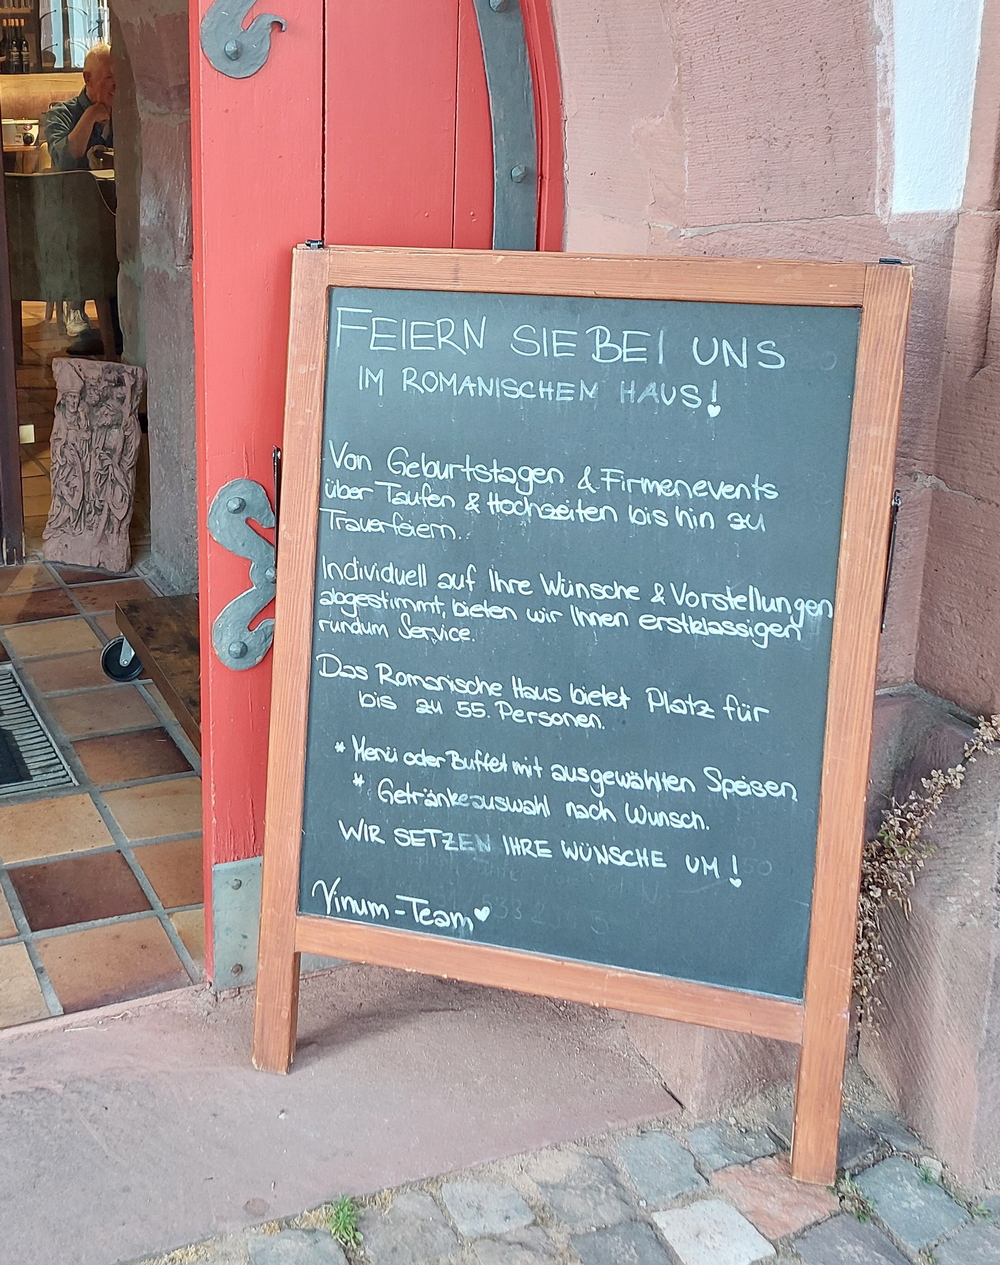 FEIERN SIE BEI UNS
IM ROMANISCHEN HAUS!
Von Geburtstagen & Firmenevents
über Taufen & Hochzeiten bis hin zu
Trauerfeiern.
Individuell auf Ihre Wünsche & Vorstellungen
abgestimmt, bieten wir Ihnen erstklassigen
rundum Service.
Das Romanische Haus bietet Platz für
bis zu 55. Personen.
* Menü oder Buffet mit ausgewählten Speisen
* Getränkeauswahl nach Wunsch.
WIR SETZEN IHRE WÜNSCHE UM!
Vinum-Team